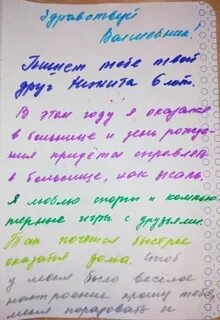 Здравствуй
Волшебник!
Пишет тебе твой
друг Никита 6 лет.
В этом году я оказался
в больнице и день рожде
ния придётся справлять
в больнице, как жаль.
Я люблю спорт и компью
терные игры с друзьями.
Так хочется быстрее
оказатся дома. Чтоб
у меня было весёлое
настроение прошу тебя
меня порадовать и